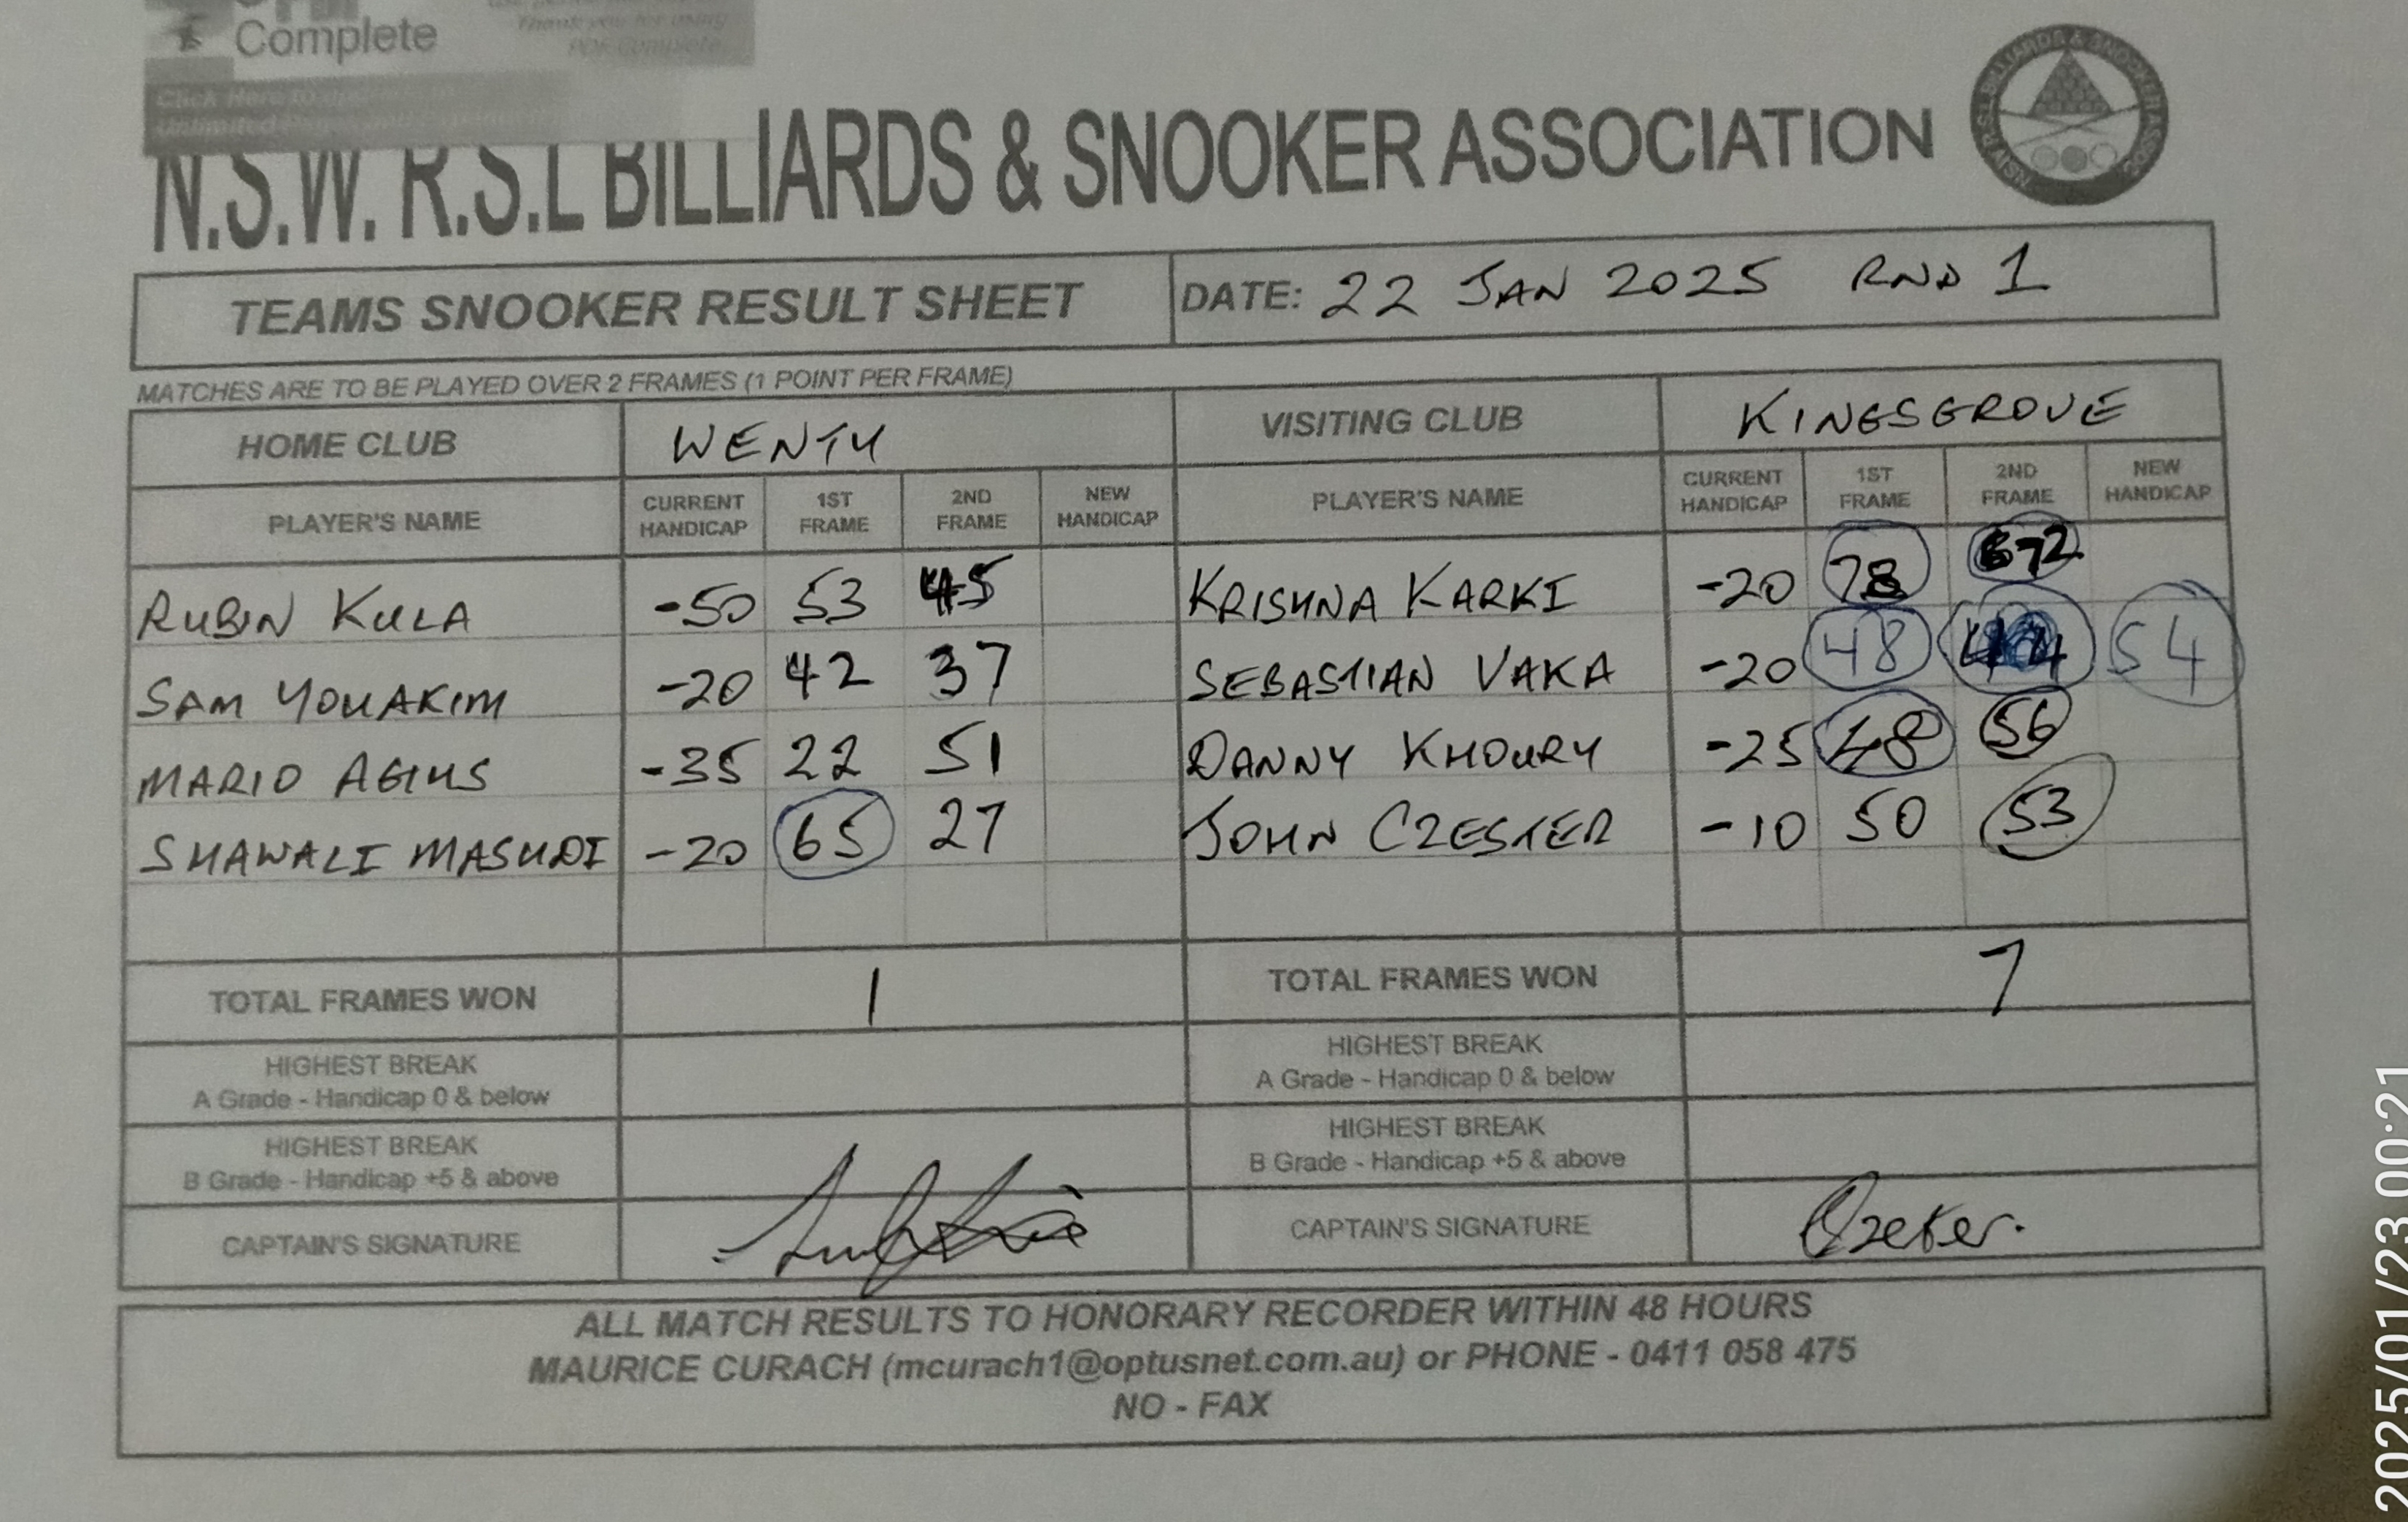 Complete
Thank you for using
PDF Complete.
N.S.W. R.S.L BILLIARDS & SNOOKER ASSOCIATION
NSW RSL BILLIARDS & SNOOKER ASSOC
TEAMS SNOOKER RESULT SHEET DATE: 22 JAN 2025 RND 1
MATCHES ARE TO BE PLAYED OVER 2 FRAMES (1 POINT PER FRAME)
HOME CLUB WENTY VISITING CLUB KINGSGROVE
PLAYER'S NAME CURRENT HANDICAP 1ST FRAME 2ND FRAME NEW HANDICAP PLAYER'S NAME CURRENT HANDICAP 1ST FRAME 2ND FRAME NEW HANDICAP
RUBIN KULA -50 53 45 KRISHNA KARKI -20 78 72
SAM YOUAKIM -20 42 37 SEBASTIAN VAKA -20 48 54
MARIO AGIUS -35 22 51 DANNY KHOURY -25 48 56
SHAWALI MASHDI -20 65 27 JOHN CZESTER -10 50 53
TOTAL FRAMES WON 1 TOTAL FRAMES WON 7
HIGHEST BREAK HIGHEST BREAK
A Grade - Handicap 0 & below A Grade - Handicap 0 & below
HIGHEST BREAK HIGHEST BREAK
B Grade - Handicap +5 & above B Grade - Handicap +5 & above
CAPTAIN'S SIGNATURE CAPTAIN'S SIGNATURE
ALL MATCH RESULTS TO HONORARY RECORDER WITHIN 48 HOURS
MAURICE CURACH (mcurach1@optusnet.com.au) or PHONE - 0411 058 475
NO - FAX
2025/01/23 00:21